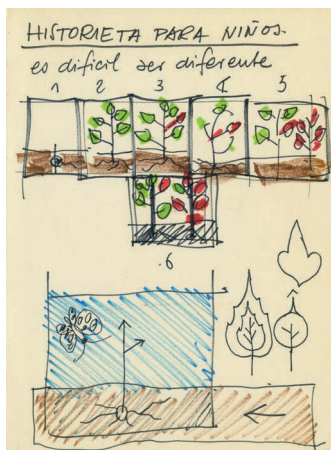 HISTORIETA PARA NIÑOS.
es dificil ser diferente
1 2 3 4 5
.6